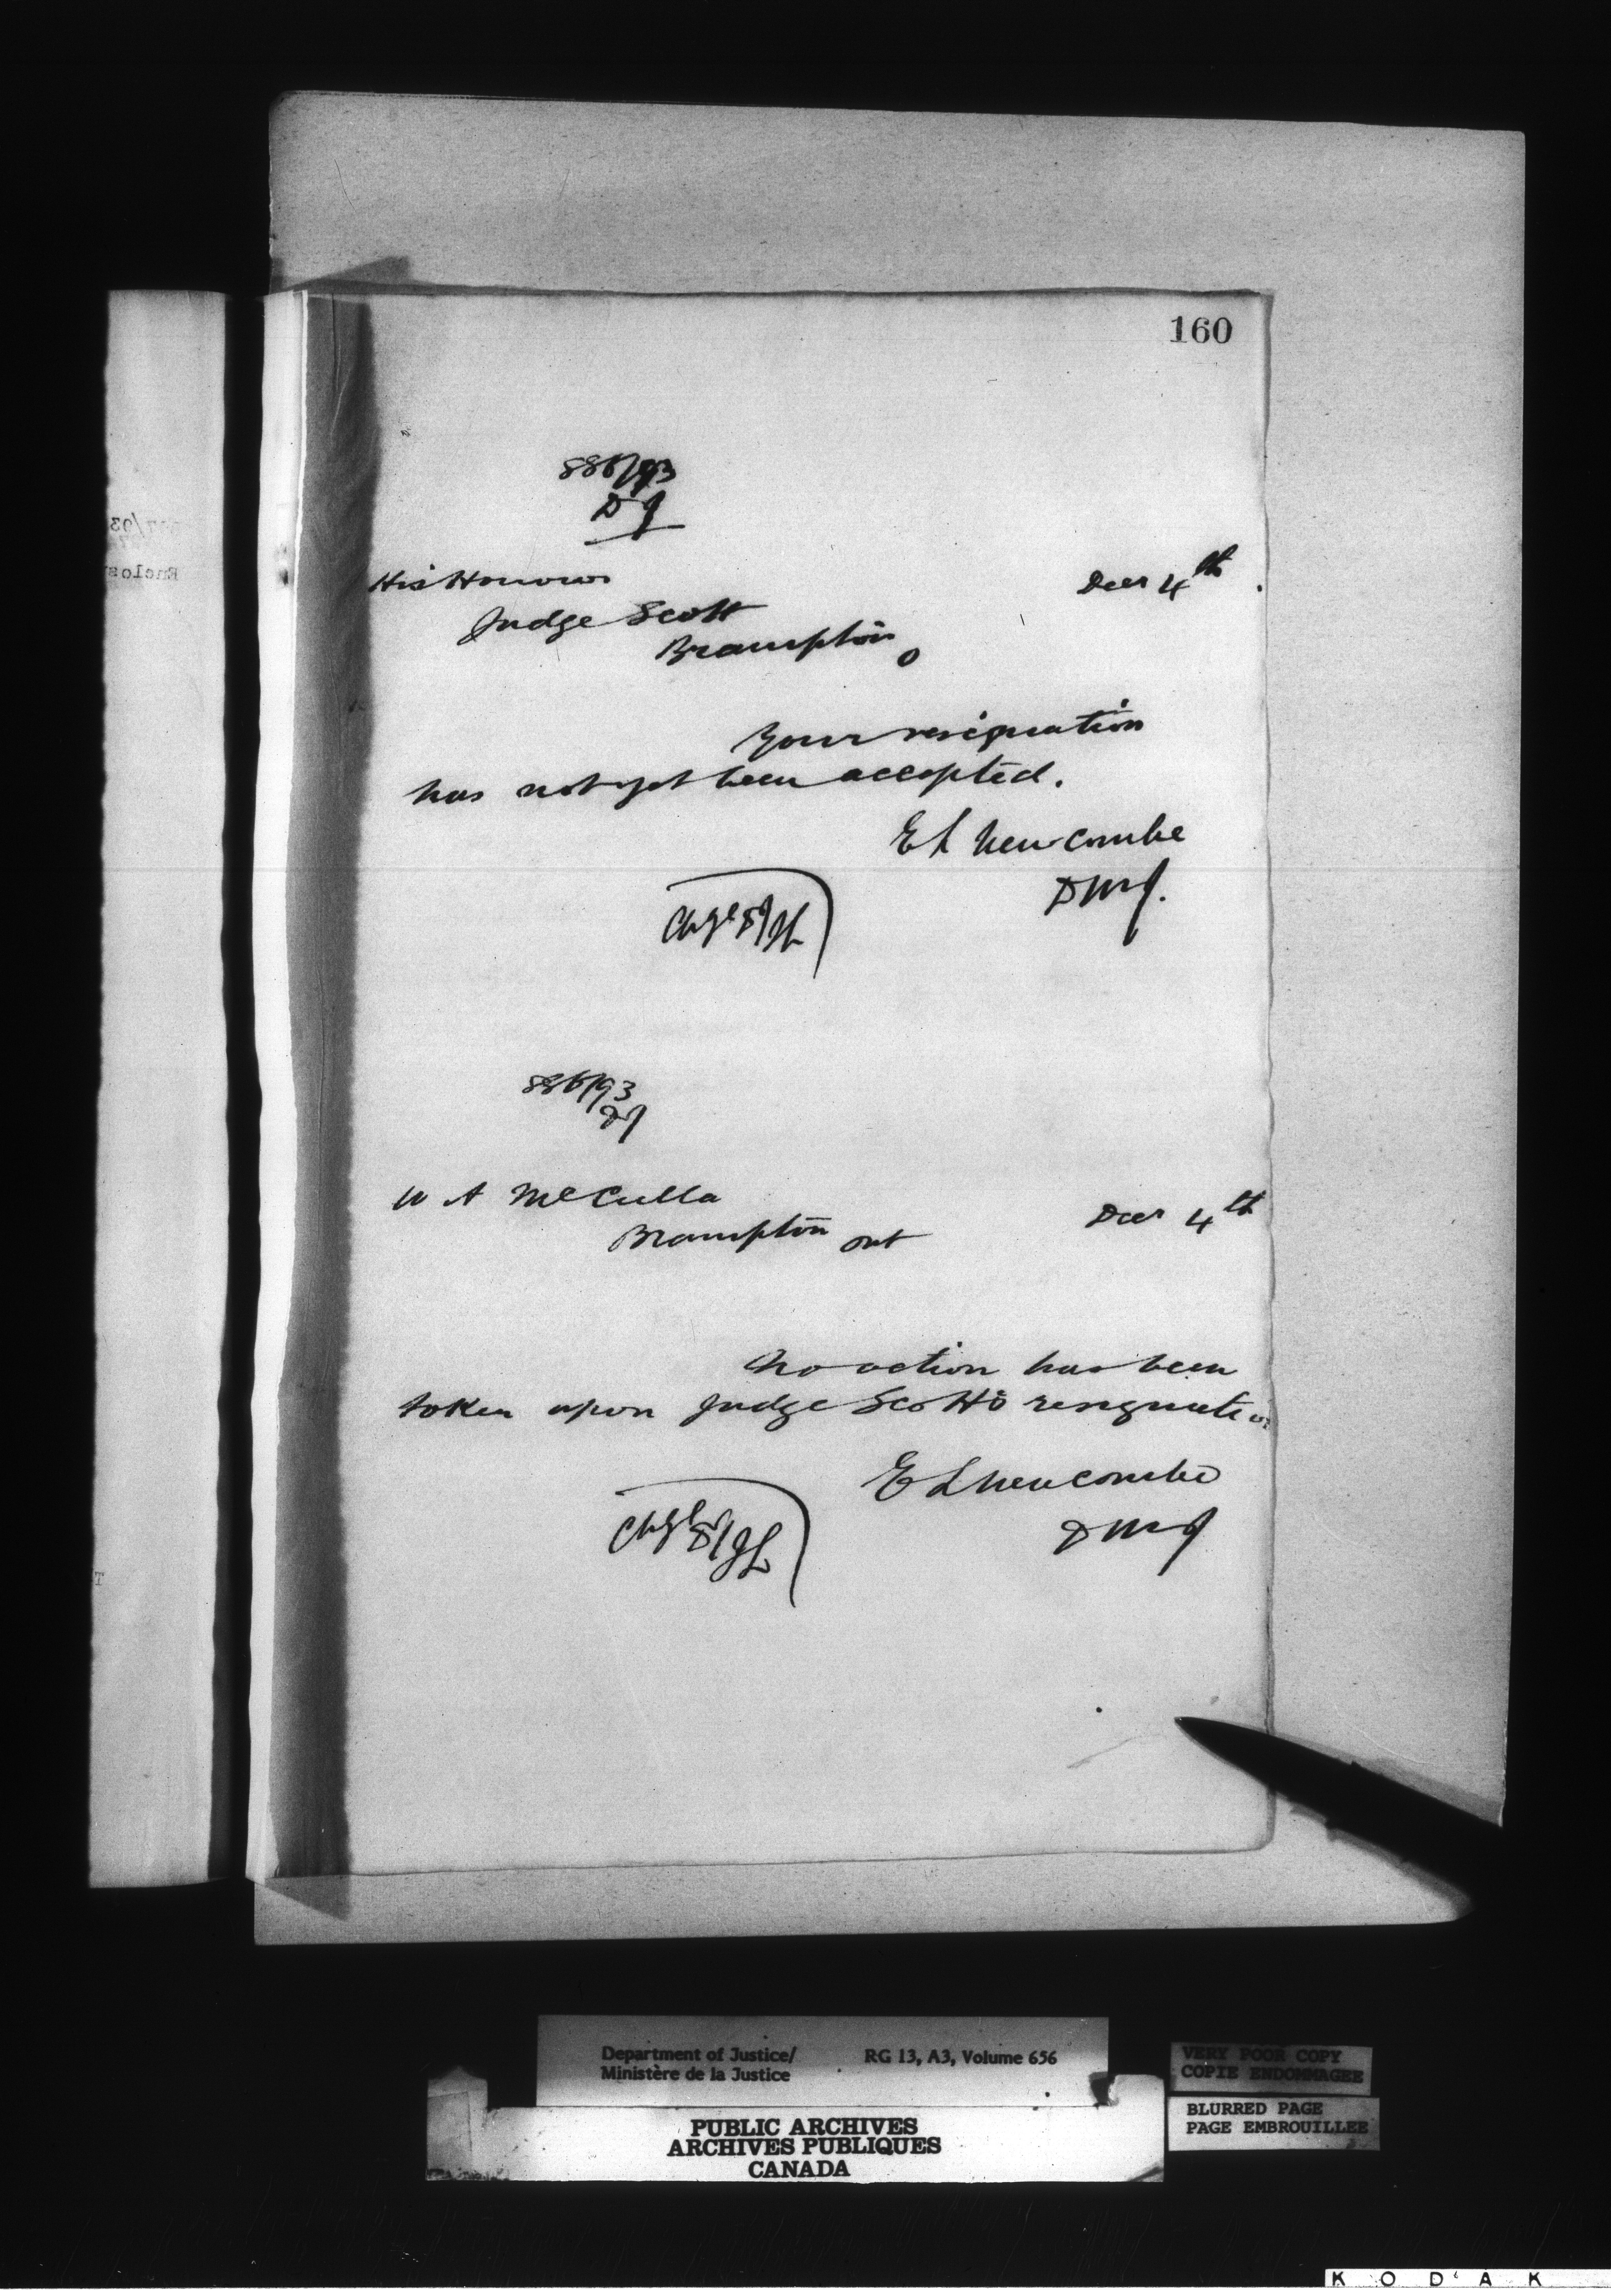 160
886/93
DJ
His Honour
Decr 4th
Judge Scott
Brampton
O
Your resignation
has not yet been accepted.
E L Newcombe
DMJ.
Chge DJ
886/93
DJ
W A McCulla
Decr 4th
Brampton Ont
No action has been
taken upon Judge Scott's resignation
E L Newcombe
DMJ
Chge DJ
Department of Justice/
Ministère de la Justice
RG 13, A3, Volume 656
PUBLIC ARCHIVES
ARCHIVES PUBLIQUES
CANADA
VERY POOR COPY
COPIE ENDOMMAGEE
BLURRED PAGE
PAGE EMBROUILLEE
KODAK